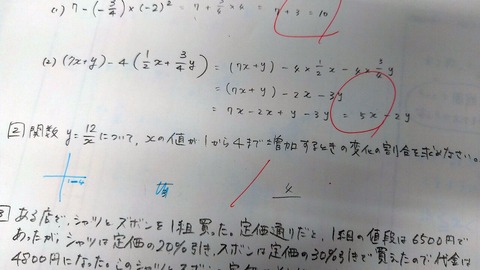 (1) 7-(-3/4)×(-2)² = 7+3/4×4 = 7+3=10
(2) (7x+y)-4(1/2x+3/4y) = (7x+y)-4×1/2x-4×3/4y
= (7x+y)-2x-3y
= 7x-2x+y-3y = 5x-2y
2 関数 y=12/x について、xの値が1から4まで増加するときの変化の割合を求めなさい。
1 4
3 ある店で、シャツとズボンを1組買った。定価通りだと、1組の値段は6500円で
あったが、シャツは定価の20%引き、ズボンは定価の30%引きで買えたので代金は
4800円になった。このシャツとズボン